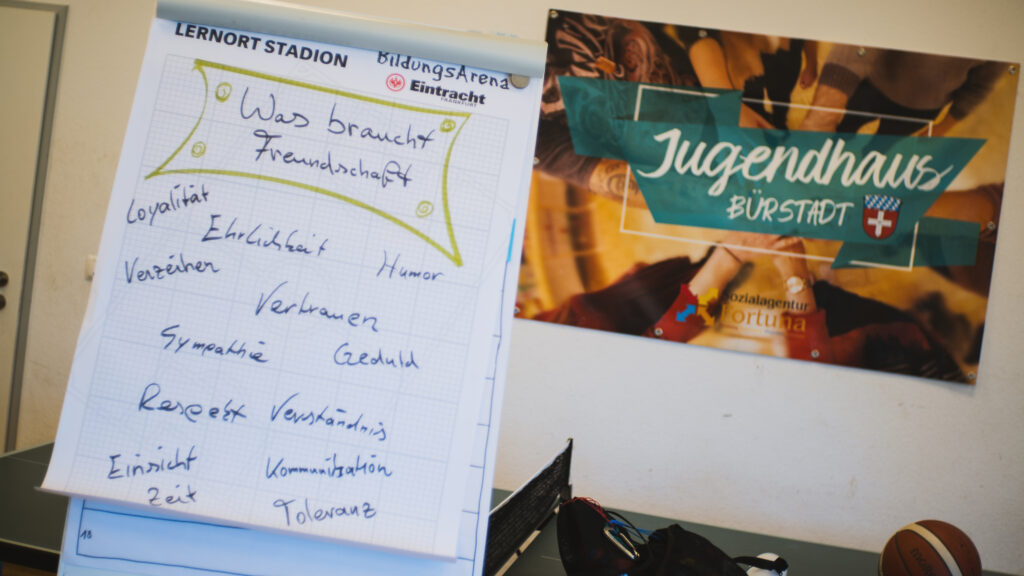 LERNORT STADION
BildungsArena
Eintracht
FRANKFURT
Was braucht
Freundschaft
Loyalität
Ehrlichkeit
Verzeihen
Humor
Vertrauen
Sympathie
Geduld
Respekt
Verständnis
Einsicht
Kommunikation
Zeit
Toleranz
18
Jugendhaus
BÜRSTADT
Sozialagentur
Fortuna
molten